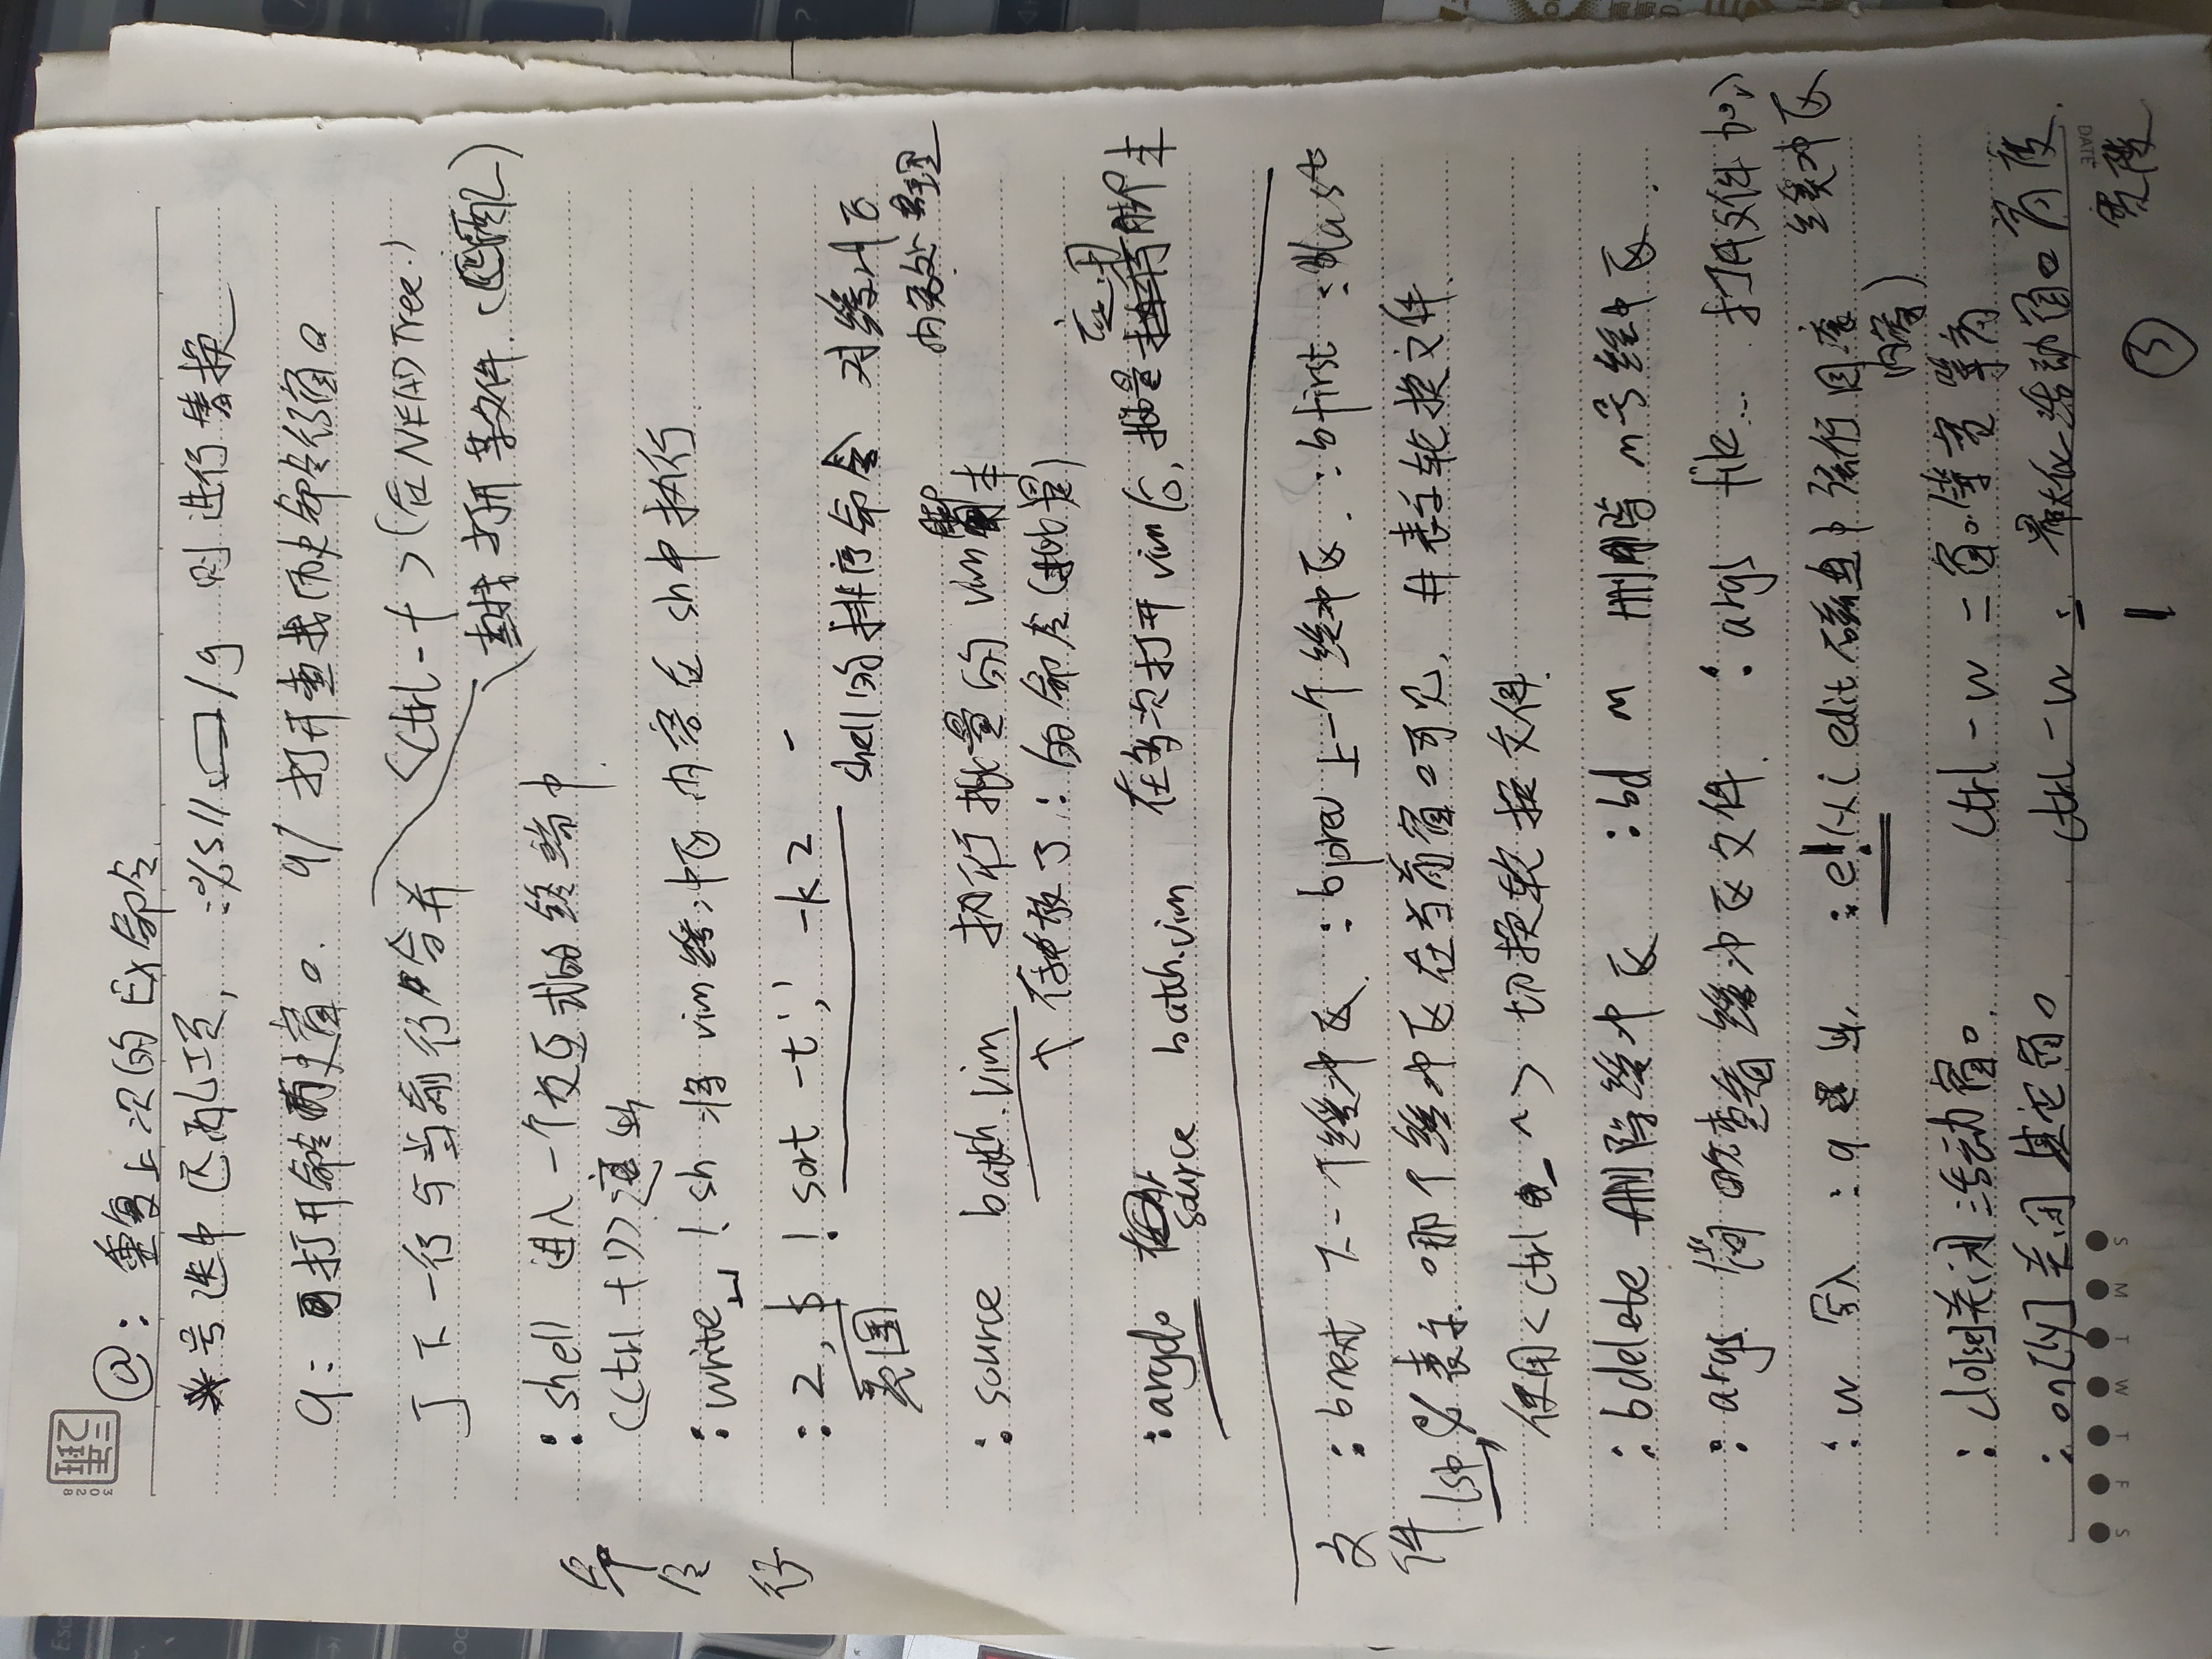 @: 重复上次的Ex命令
*号选中匹配项, :%s//□/g 则进行替换
q: 打开命令历史窗口. q/ 打开查找历史命令行窗口
J 下一行与当前行合并 <Ctrl-t>(在NERDTree)
打开某文件.
:shell 进入一个交互式的终端中.
(Ctrl+D)退出
:write␣!sh 将vim缓冲区内容在sh中执行.
:2,$!sort -t',' -k2
范围
shell的排序命令 对缓冲区
内容处理
:source batch.vim 执行批量的vim脚本
存放了:的命令(批量)
:argdo source batch.vim 在多次打开vim后,批量应用脚本
命令行
文件
:bnext 下一个缓冲区. :bprev 上一个缓冲区. :bfirst :blast
:ls中,%表示哪个缓冲区在当前窗口可见, #表示轮换文件.
使用<Ctrl-^> 切换轮换文件.
:bdelete 删除缓冲区 :bd n m 删除 n m号缓冲区.
:args 简略查看缓冲区文件. :args file... 打开文件加入
缓冲区
:w 写入 :q 退出. :e!(从 edit 磁盘中强行回读
内容)
:clo[se]关闭活动窗口. Ctrl-w = 窗口等宽等高
:on[ly]关闭其它窗口 Ctrl-w _ 最大化活动窗口高度.
| 宽度
③
DATE
S M T W T F S